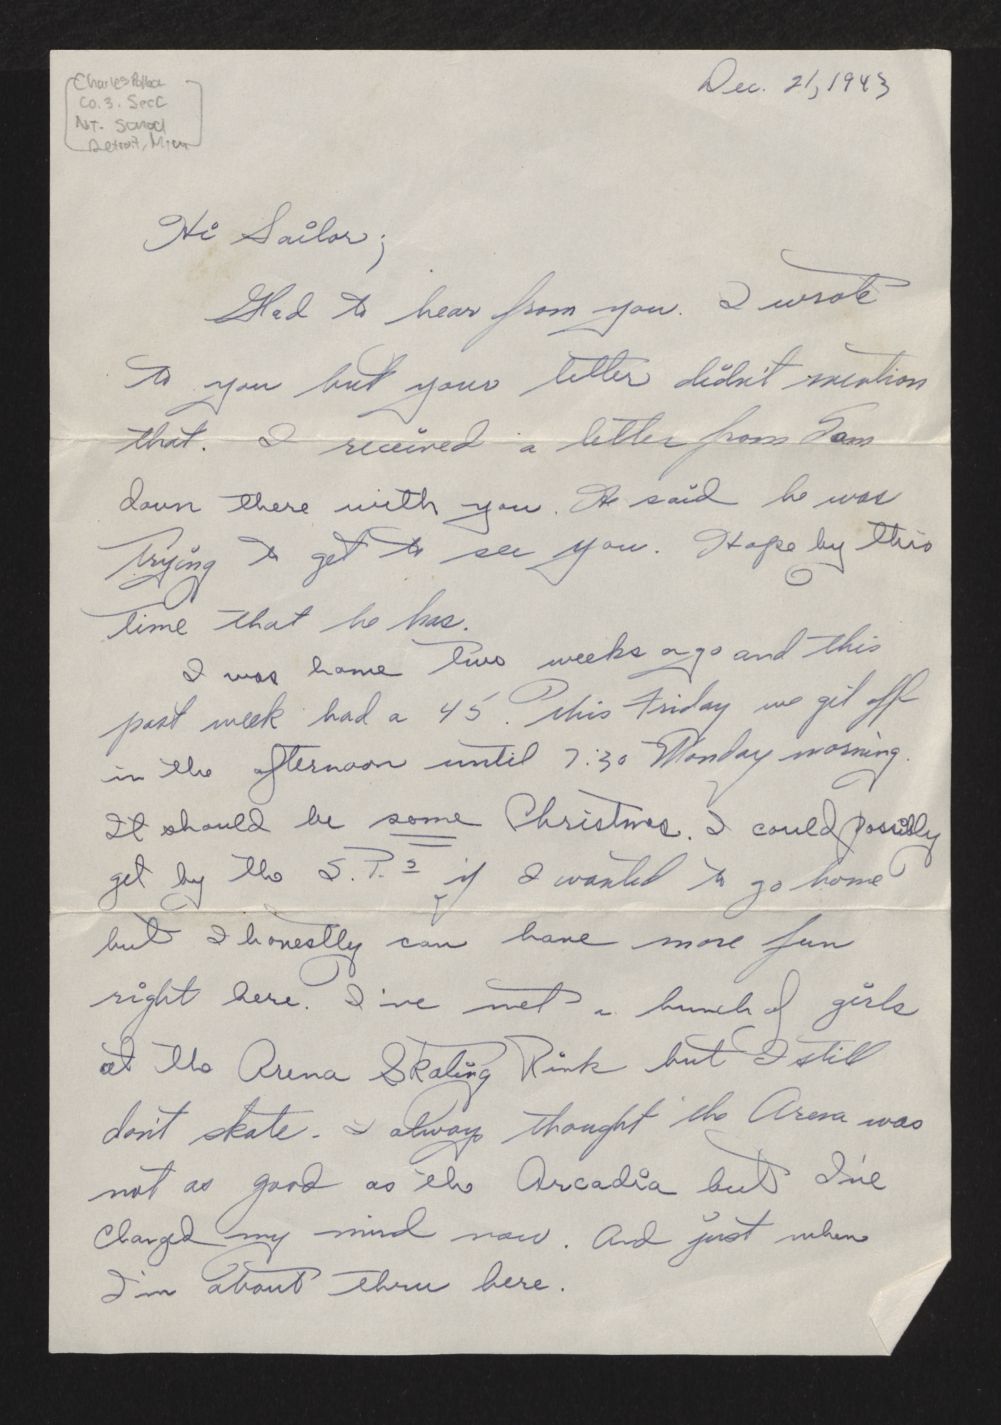 Charles
Co. 3. Sec C
NT. School
Detroit, Mich
Dec. 21, 1943
Hi Sailor;
Glad to hear from you. I wrote
to you but your letter didn't mention
that. I received a letter from Sam
down there with you. He said he was
trying to get to see you. Hope by this
time that he has.
I was home two weeks ago and this
past week had a 45. This Friday we git off
in the afternoon until 7:30 Monday morning.
It should be some Christmas. I could possibly
get by the S.P.s if I wanted to go home
but I honestly can have more fun
right here. I've met a bunch of girls
at the Arena Skating Rink but I still
don't skate. I always thought the Arena was
not as good as the Arcadia but I've
changed my mind now. And just when
I'm about thru here.